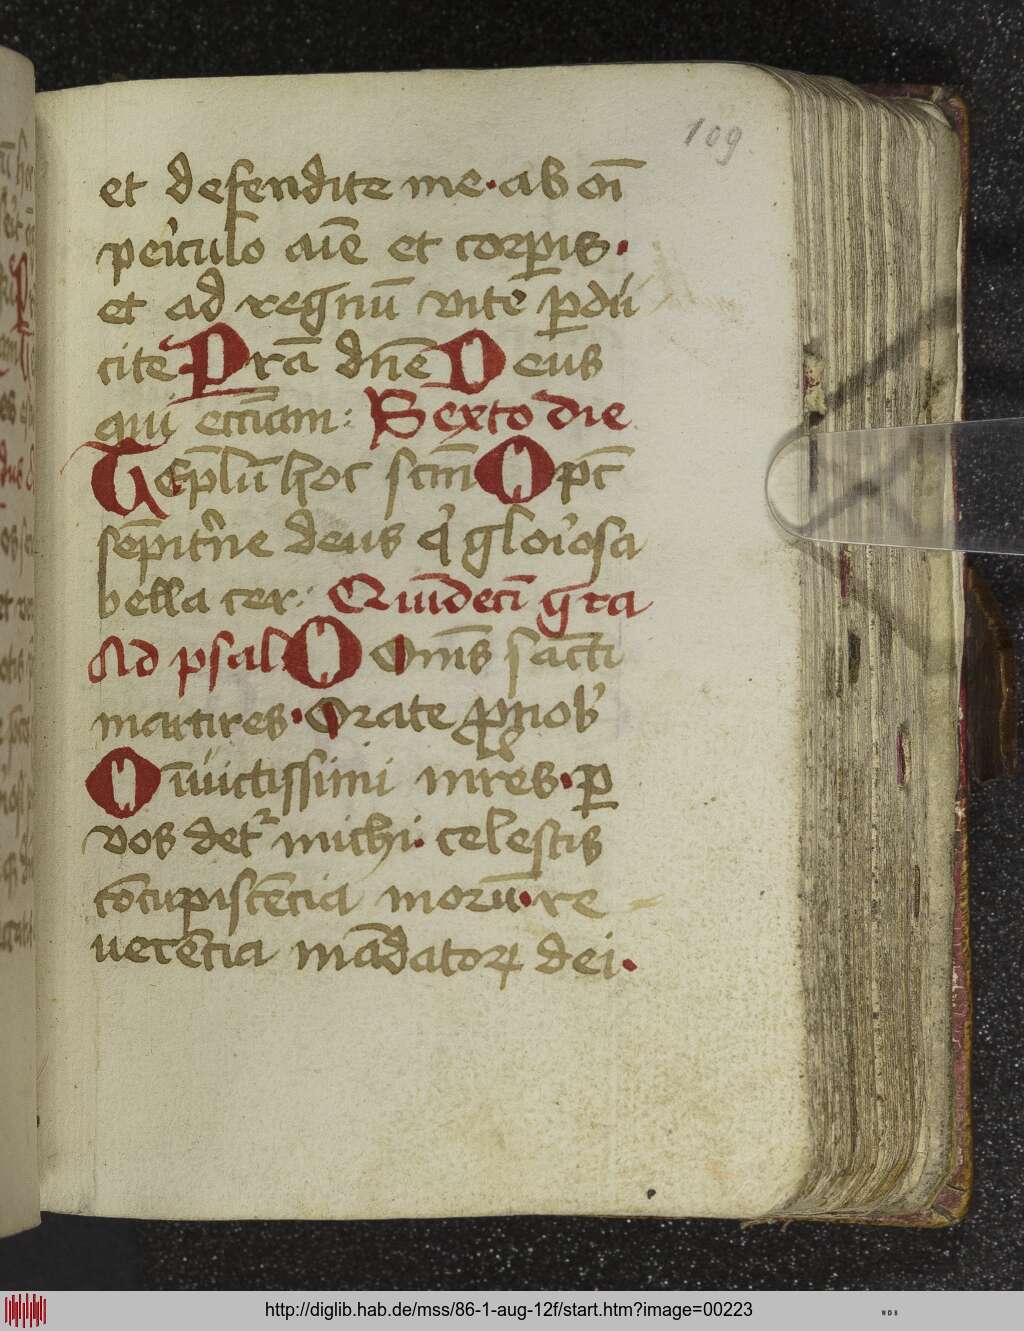 109
et defendite me · ab oī
peri̕culo aīe et corpis ·
et ad regnū vite p̄du
cite Pra dn̄e Deus
qui eccīam : Sexto die
Templū hoc scm̄ Opc̄
sēpitn̕e deus q̕ glori̕osa
bella cer : Quīdecī gra
Ad psal O Omīs sacti
martires · Orate ꝓ nob̕
O īuictissimi mr̄es · ꝑ
vos det᷑ michi · celestis
cōcupiscēcia morū · re
uerēcia mādatoꝝ dei ·
http://diglib.hab.de/mss/86-1-aug-12f/start.htm?image=00223